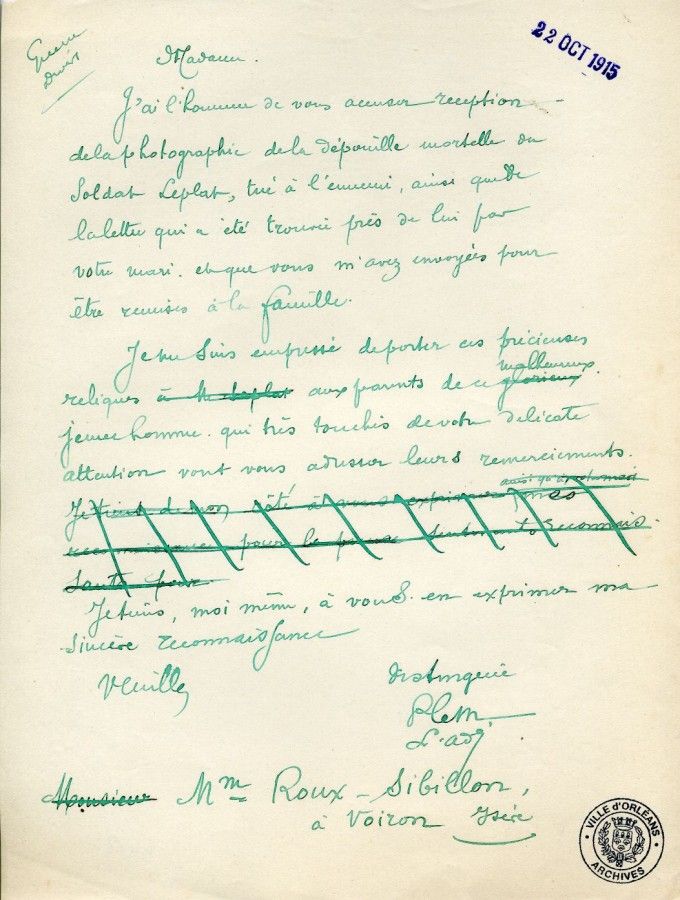 Guerre
Divers
22 OCT 1915
Madame.
J'ai l'honneur de vous accuser reception
de la photographie de la dépouille mortelle du
Soldat Leplat, tué à l'ennemi, ainsi que de
la lettre qui a été trouvée près de lui par
votre mari. et que vous m'avez envoyées pour
être remises à la famille.
Je me suis empressé de porter ces précieuses
malheureux
reliques à Me Leplat aux parents de ce glorieux.
jeune homme. qui très touchés de votre délicate
attention vont vous adresser leurs remerciements.
ainsi qu'à votre mari
Je tiens de mon côté à vous exprimer mes
reconnaissance pour la sentiments reconnais-
sants pour
Je tiens, moi même, à vous en exprimer ma
sincère reconnaissance
Veuillez distinguée
L'adj.
Monsieur Mme Roux-Sibillon,
à Voiron Isère
VILLE d'ORLÉANS
ARCHIVES